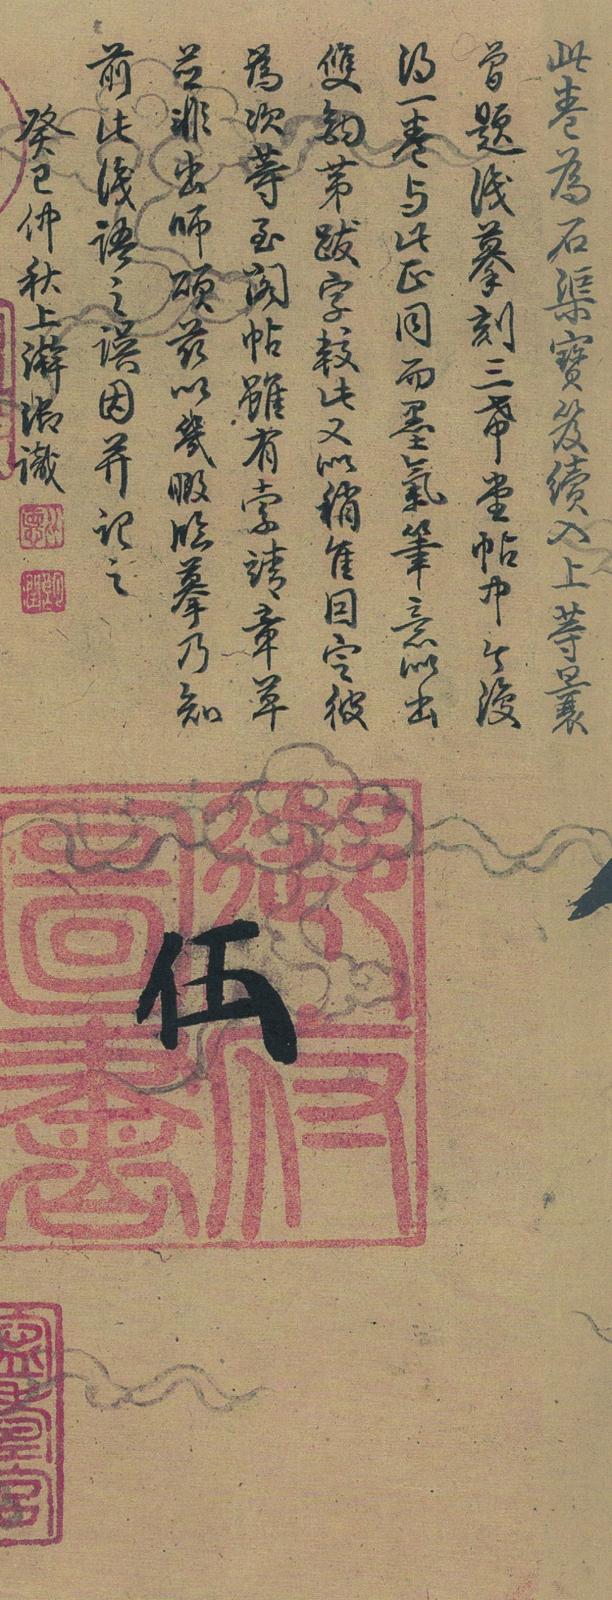 此卷為石渠寶笈續入上等曩
曾題識摹刻三希堂帖中今復
得一卷与此正同而墨氣筆意似出
雙鉤第跋字較此又似稍佳因定彼
為次等至閣帖雖有索靖章草
並非出師頌茲以幾暇臨摹乃知
前此識語之誤因并記之
癸巳仲秋上澣御識
伍
御府
圖書
寧壽宮